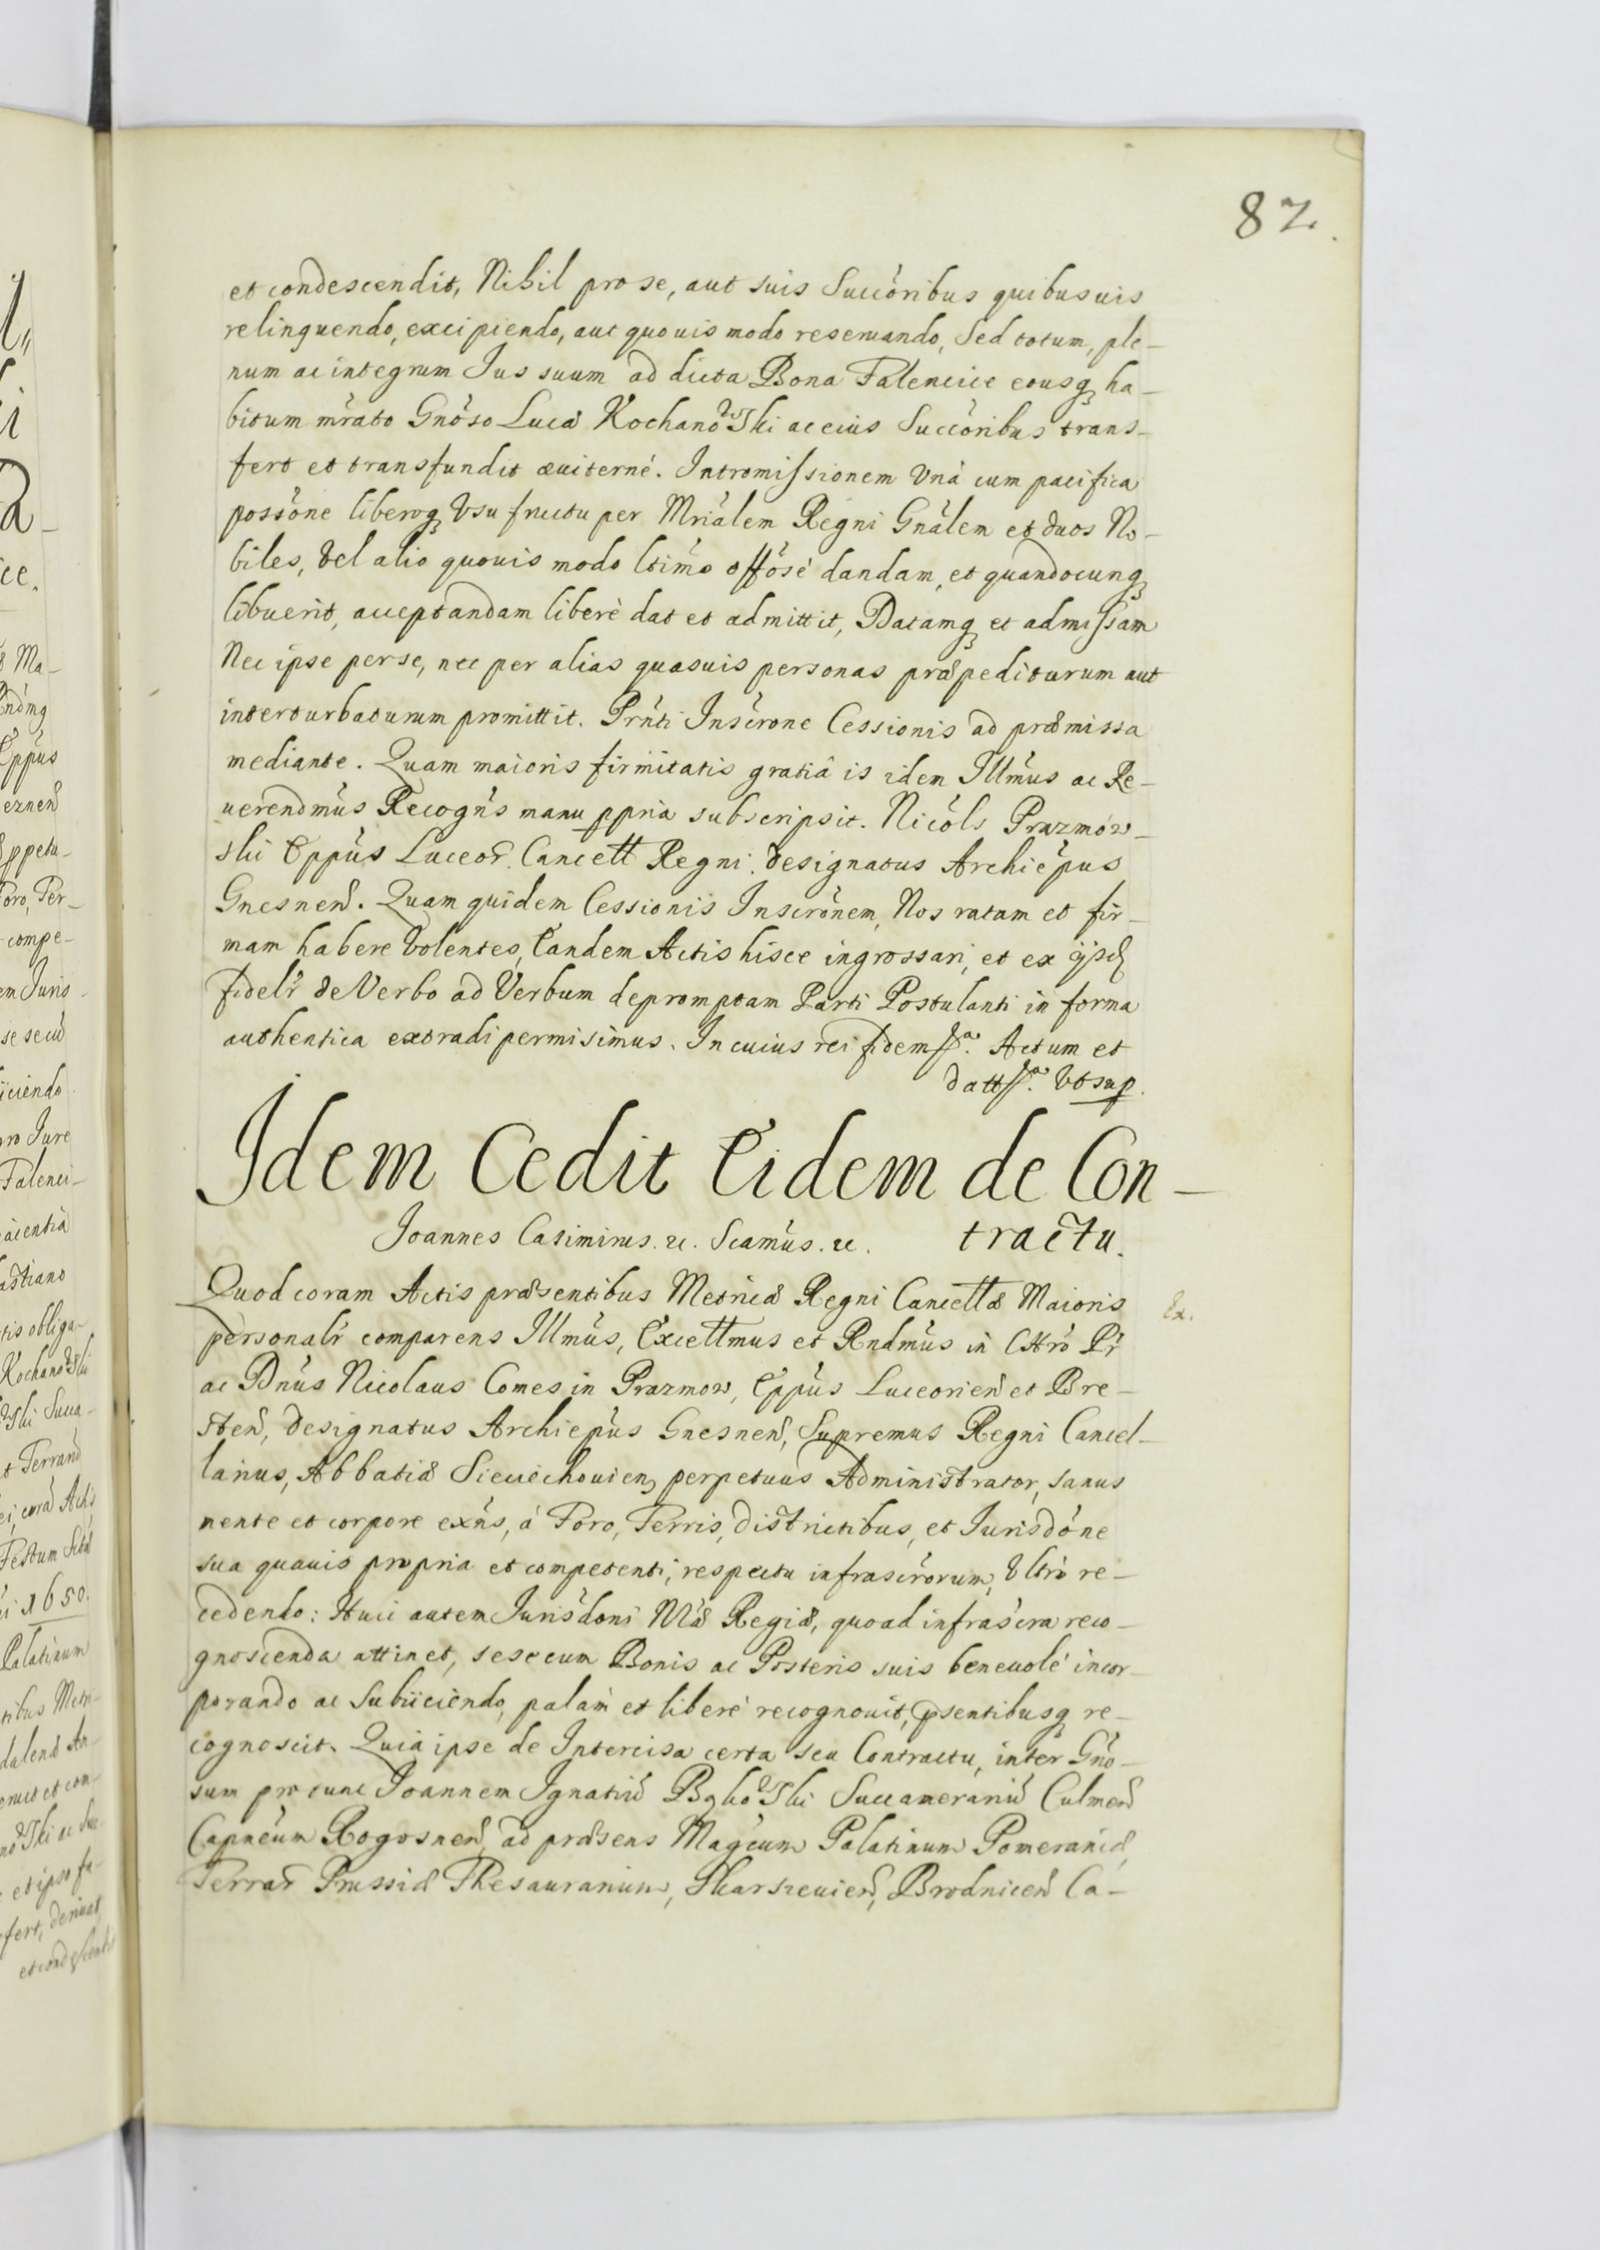 82.
et condescendit, Nihil pro se, aut suis Succóribus quibusuis
relinquendo, excipiendo, aut quouis modo reseruando, Sed totum, ple-
num ac integrum Jus suum ad dicta Bona Falencice eousq₃ ha-
bitum mrato Gnoso Lucæ Kochanowski ac eius Succóribus trans-
fert et transfundit æuiterné. Intromissionem Vnà cum pacifica
possóne liberoq₃ Vsu fructu per Mriálem Regni Gnálem et duos No-
biles, Vel alio quouis modo ltimo offósé dandam, et quandocunq₃
libuerit, acceptandam liberè dat et admittit, Datamq₃ et admissam
Nec ipse per se, nec per alias quasuis personas præpediturum aut
interturbaturum promittit. Prńti Inscrone Cessionis ad præmissa
mediante. Quam maioris firmitatis gratiâ is idem Illmús ac Re-
uerendmús Recogńs manu ppria subscripsit. Nicóls Prazmow-
ski Eppús Luceor̃. Cancell Regni. designatus Archiepús
Gnesneñ. Quam quidem Cessionis Inscrónem, Nos ratam et fir-
mam habere Volentes, Eandem Actis hisce ingrossari, et ex ijsd̃
fidelr̃ de Verbo ad Verbum depromptam Parti Postulanti in forma
authentica extradi permisimus. In cuius rei fidem &c. Actum et
datt &c. Vt sup.
Idem Cedit Eidem de Con-
tractu.
Joannes Casimirus. &c. Scamús. &c.
Quod coram Actis præsentibus Metricæ Regni Cancellæ Maioris
Ex.
personalr̃ comparens Illmús, Excellmus et Rndmús in Chro Pr̃
ac Dnús Nicolaus Comes in Prazmow, Eppús Luceorień et Bre-
steñ, designatus Archiepús Gnesneñ, Supremus Regni Cancel-
larius, Abbatiæ Sieciechouień perpetuus Administrator, sanus
mente et corpore exńs, á Foro, Terris, districtibus, et Jurisdóne
sua quauis propria et competenti, respectu infrascrorum, Vltró re-
cedendo: Huic autem Jurisdoni Nræ Regiæ, quoad infrascra reco-
gnoscenda attinet, sese cum Bonis ac Posteris suis beneuolé incor-
porando ac Subiiciendo, palám et liberé recognouit, psentibusq₃ re-
cognoscit. Quia ipse de Intercisa certa seu Contractu, inter Gno-
sum pro tunc Joannem Ignatiũ Bąkowski Succamerariũ Culmeñ
Capneum Rogosneñ, ad præsens Magcum Palatinum Pomeraniæ,
Terrar̃ Prussiæ Thesaurarium, Skarszeuieñ, Brodniceñ Ca-